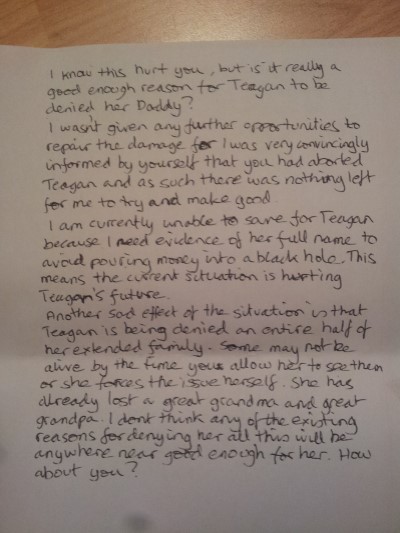 I know this hurt you, but is it really a
good enough reason for Teagan to be
denied her Daddy?
I wasn't given any further opportunities to
repair the damage for I was very convincingly
informed by yourself that you had aborted
Teagan and as such there was nothing left
for me to try and make good.
I am currently unable to save for Teagan
because I need evidence of her full name to
avoid pouring money into a black hole. This
means the current situation is hurting
Teagan's future.
Another sad effect of the situation is that
Teagan is being denied an entire half of
her extended family. Some may not be
alive by the time you allow her to see them
or she forces the issue herself. She has
already lost a great grandma and great
grandpa. I dont think any of the existing
reasons for denying her all this will be
anywhere near good enough for her. How
about you?